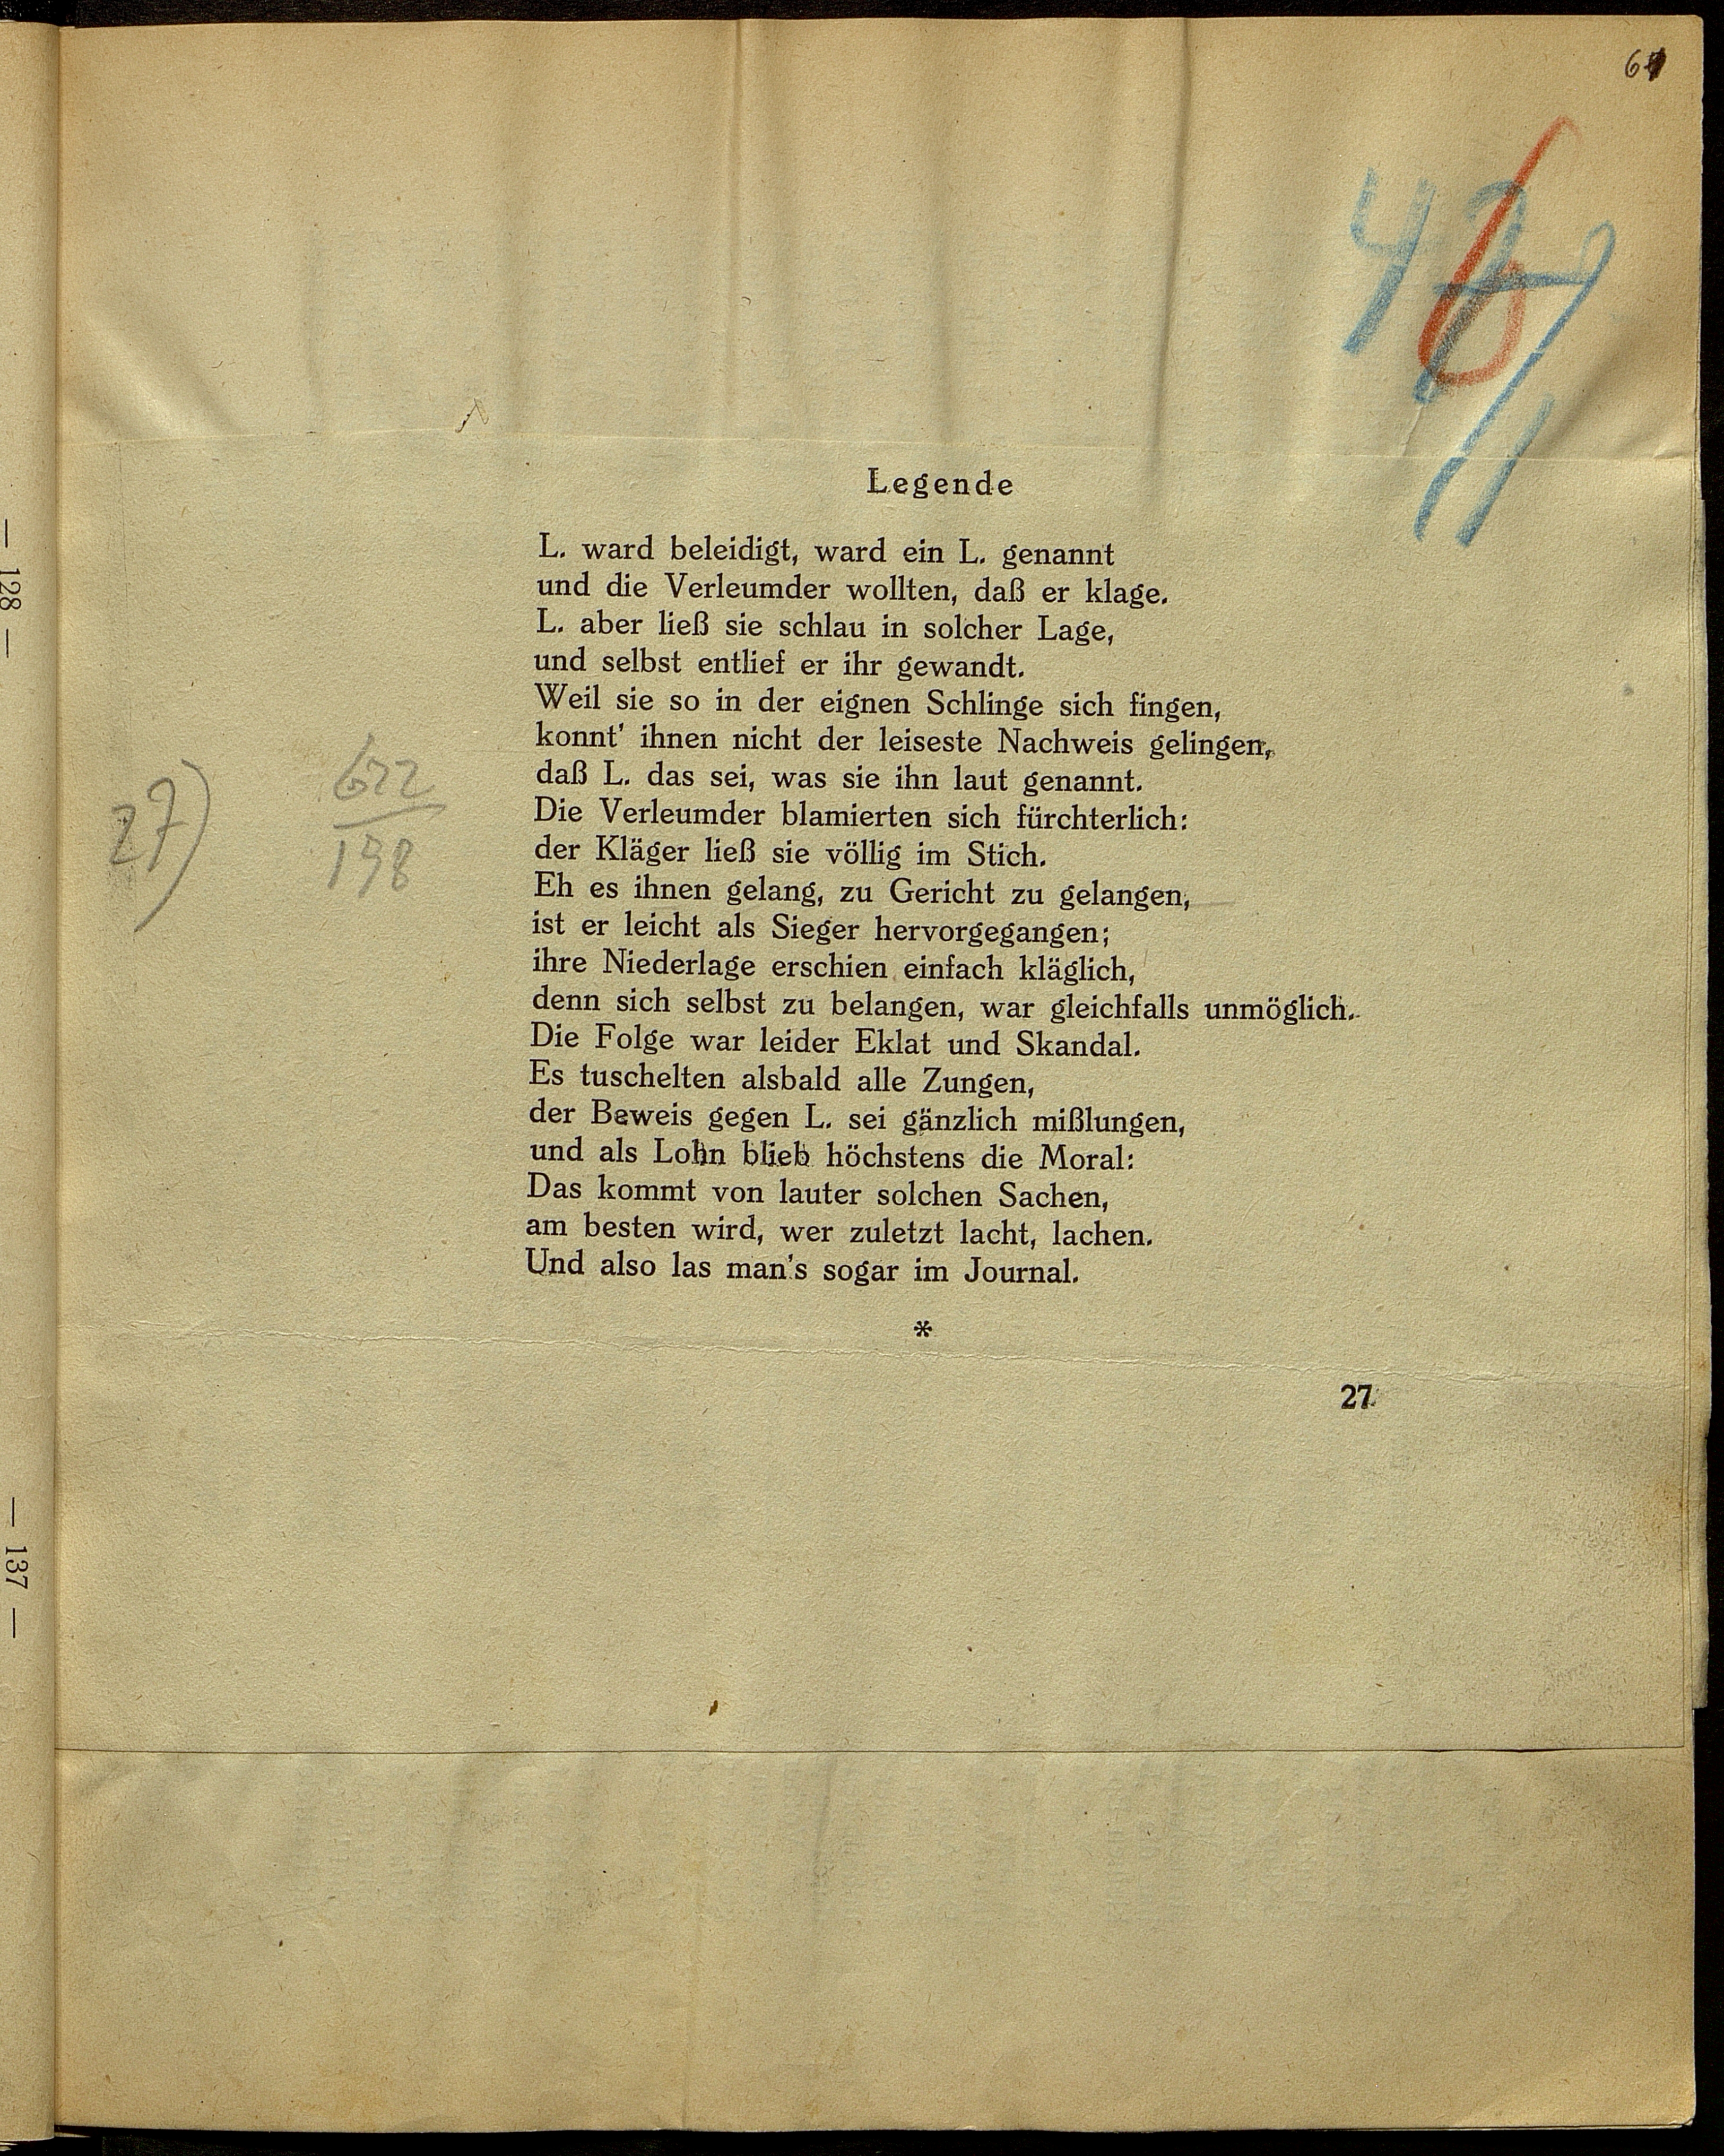 Legende
L. ward beleidigt, ward ein L. genannt
und die Verleumder wollten, daß er klage.
L. aber ließ sie schlau in solcher Lage,
und selbst entlief er ihr gewandt.
Weil sie so in der eignen Schlinge sich fingen,
konnt' ihnen nicht der leiseste Nachweis gelingen,
daß L. das sei, was sie ihn laut genannt.
Die Verleumder blamierten sich fürchterlich:
der Kläger ließ sie völlig im Stich.
Eh es ihnen gelang, zu Gericht zu gelangen,
ist er leicht als Sieger hervorgegangen;
ihre Niederlage erschien einfach kläglich,
denn sich selbst zu belangen, war gleichfalls unmöglich.
Die Folge war leider Eklat und Skandal.
Es tuschelten alsbald alle Zungen,
der Beweis gegen L. sei gänzlich mißlungen,
und als Lohn blieb höchstens die Moral:
Das kommt von lauter solchen Sachen,
am besten wird, wer zuletzt lacht, lachen.
Und also las man's sogar im Journal.
*
27
27)
622
198
— 128 —
— 137 —